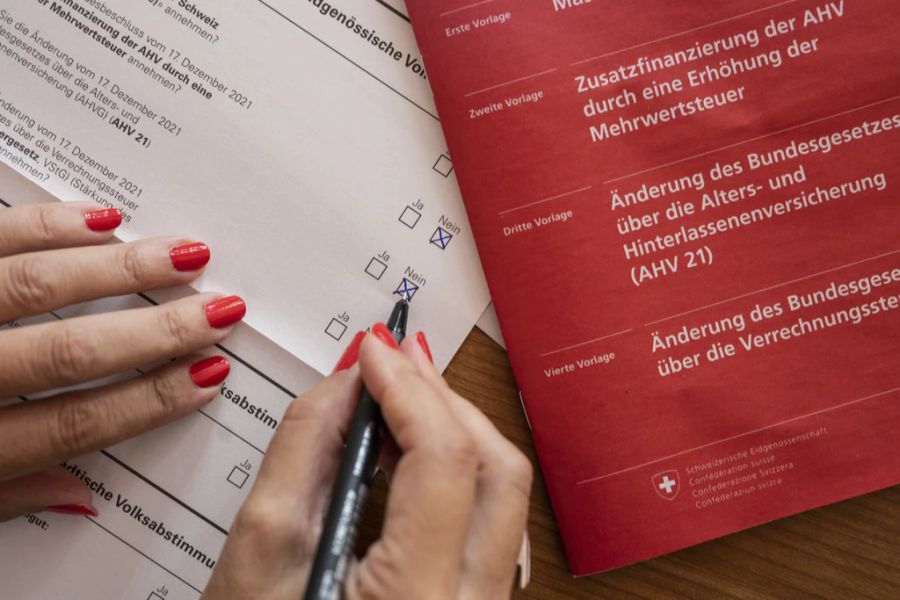 Schweiz
)» annehmen?
beschluss vom 17. Dezember 2021
anzierung der AHV durch eine
Mehrwertsteuer annehmen?
Sie die Änderung vom 17. Dezember 2021
desgesetzes über die Alters- und
nenversicherung (AHVG) (AHV 21)
Änderung vom 17. Dezember 2021
zes über die Verrechnungssteuer
ergesetz, VStG) (Stärkung des
annehmen?
dgenössische Vol
Ja
Nein
Ja
Nein
Ja
ksabstimm
Ja
dtische Volksabstimmu
gut:
Ja
Erste Vorlage
Mas
Zweite Vorlage
Zusatzfinanzierung der AHV
durch eine Erhöhung der
Mehrwertsteuer
Dritte Vorlage
Änderung des Bundesgesetzes
über die Alters- und
Hinterlassenenversicherung
(AHV 21)
Vierte Vorlage
Änderung des Bundesgese
über die Verrechnungsste
Schweizerische Eidgenossenschaft
Confédération suisse
Confederazione Svizzera
Confederaziun svizra